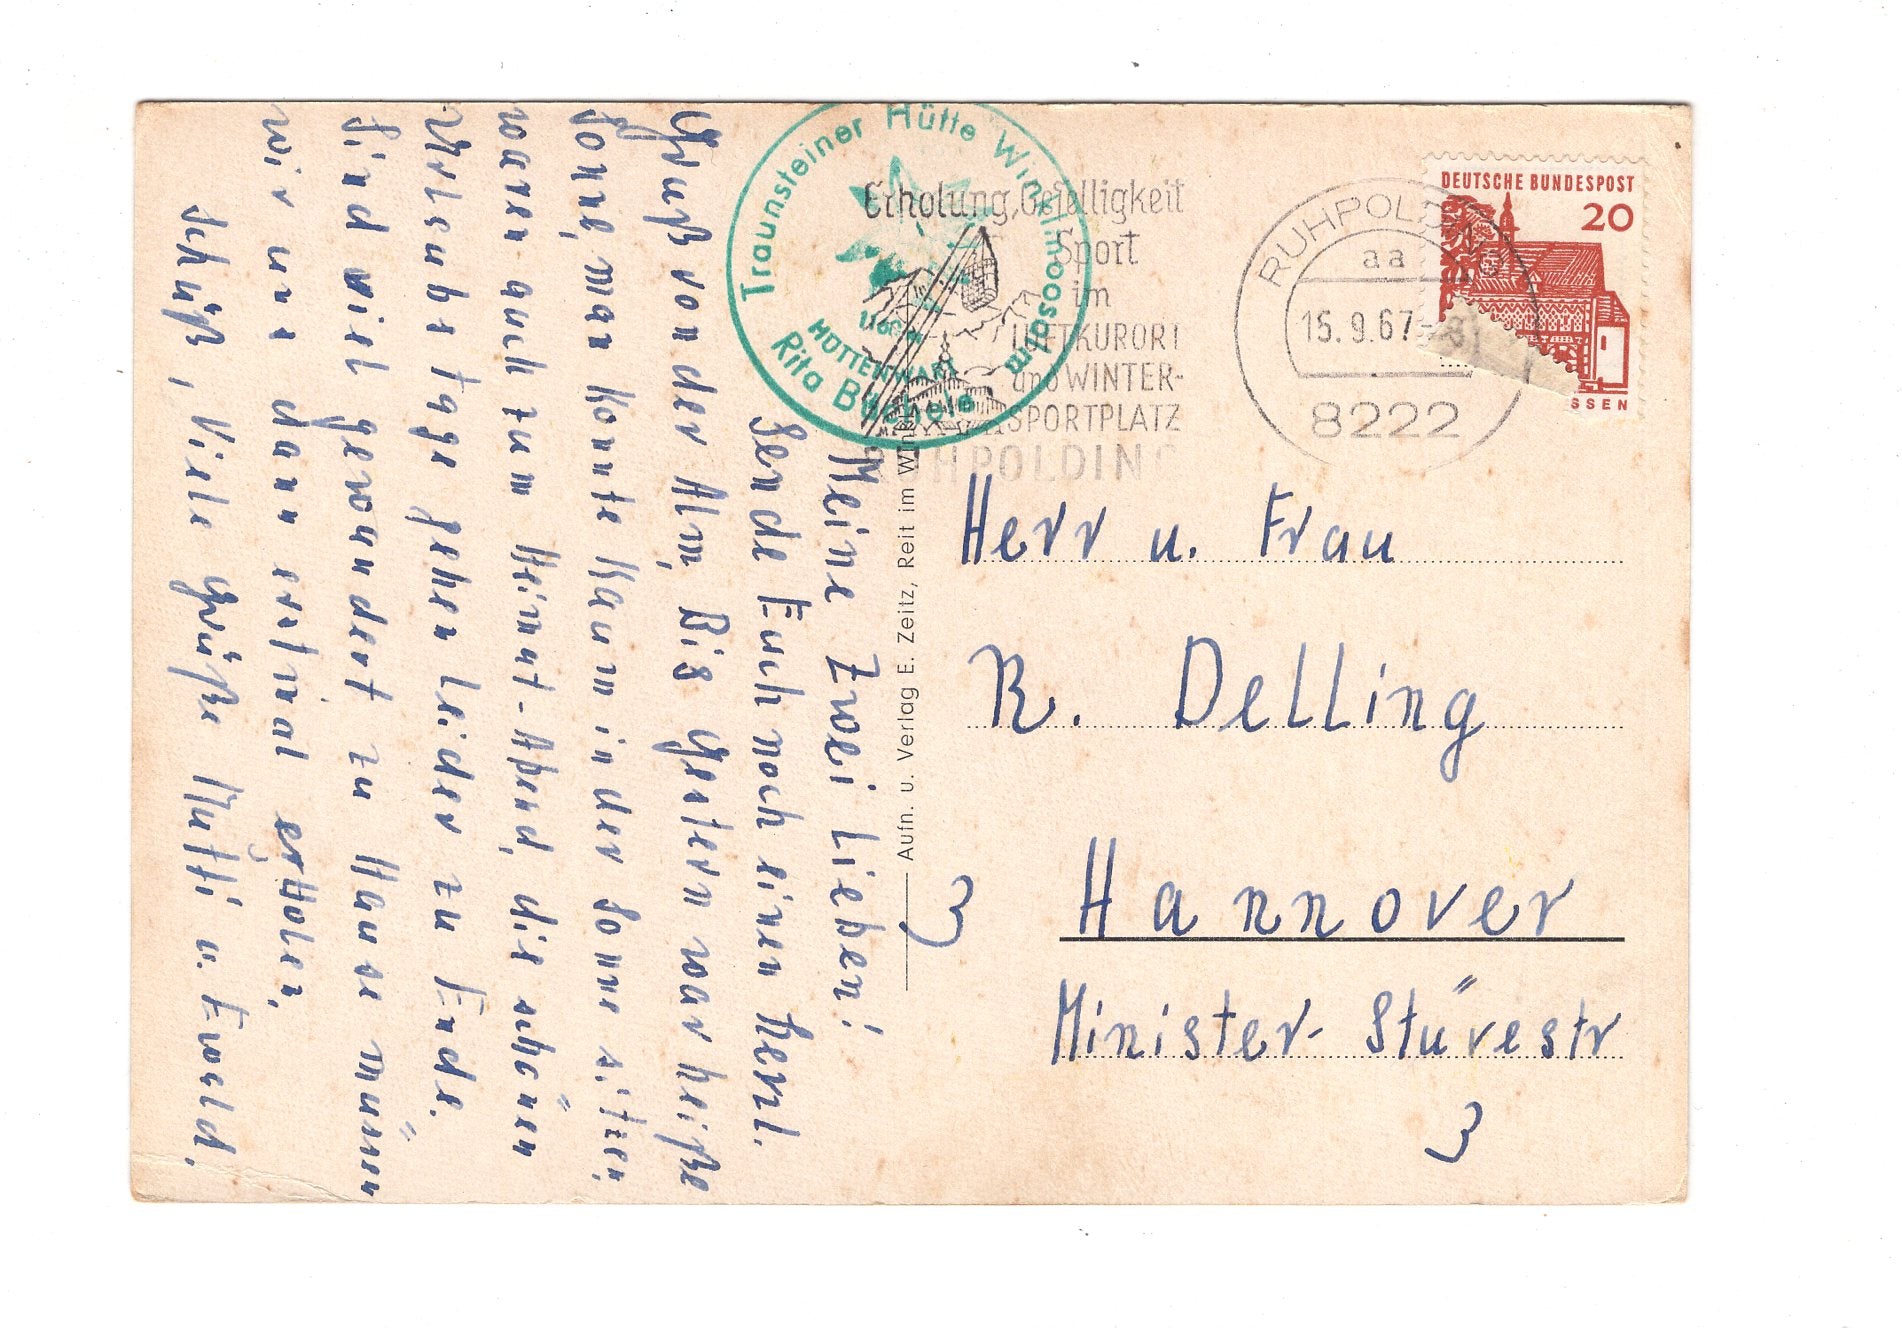 Meine Zwei Lieben!
Sende Euch noch einen herzl.
Gruß von der Alm, Bis Gestern war heiße
Sonne, man konte kaum in der Sonne sitzen,
waren auch zum Heimat-Abend, die schönen
Urlaubstage gehen leider zu Ende.
Sind viel gewandert zu Hause müssen
wir uns dann erstmal erholen,
schüß, Viele Grüße Mutti u. Ewald.
Traunsteiner Hütte Winklmoosalm
1160 m
HÜTTENWART
Rita
Erholung, Geselligkeit
Sport
im
LUFTKURORT
und WINTER-
SPORTPLATZ
RUHPOLDING
RUHPOLDING
aa
15.9.67
8222
DEUTSCHE BUNDESPOST
20
SSEN
Aufn. u. Verlag E. Zeitz, Reit im Wink
Herr u. Frau
R. Delling
3 Hannover
Minister-Stüvestr
3